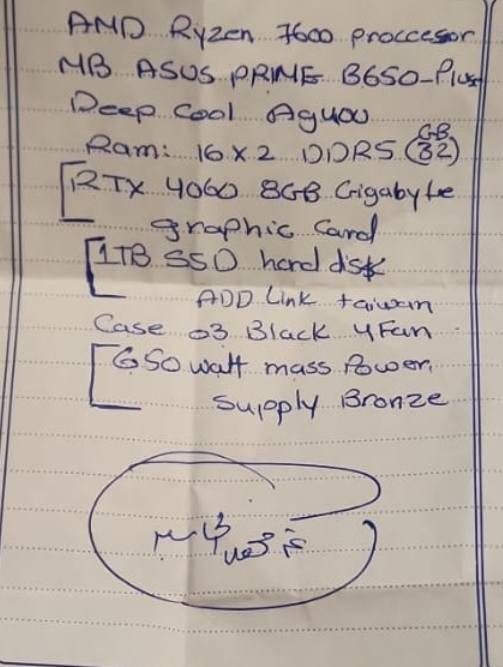 AMD Ryzen 7600 proccesor
MB ASUS PRIME B650-Plus
Deep Cool Ag400
Ram: 16 x 2 DDR5 (32)
GB
RTX 4060 8GB Gigabyte
graphic Card
1TB SSD hard disk
ADD Link taiwan
Case 03 Black 4 Fan
650 watt mass Power
Supply Bronze